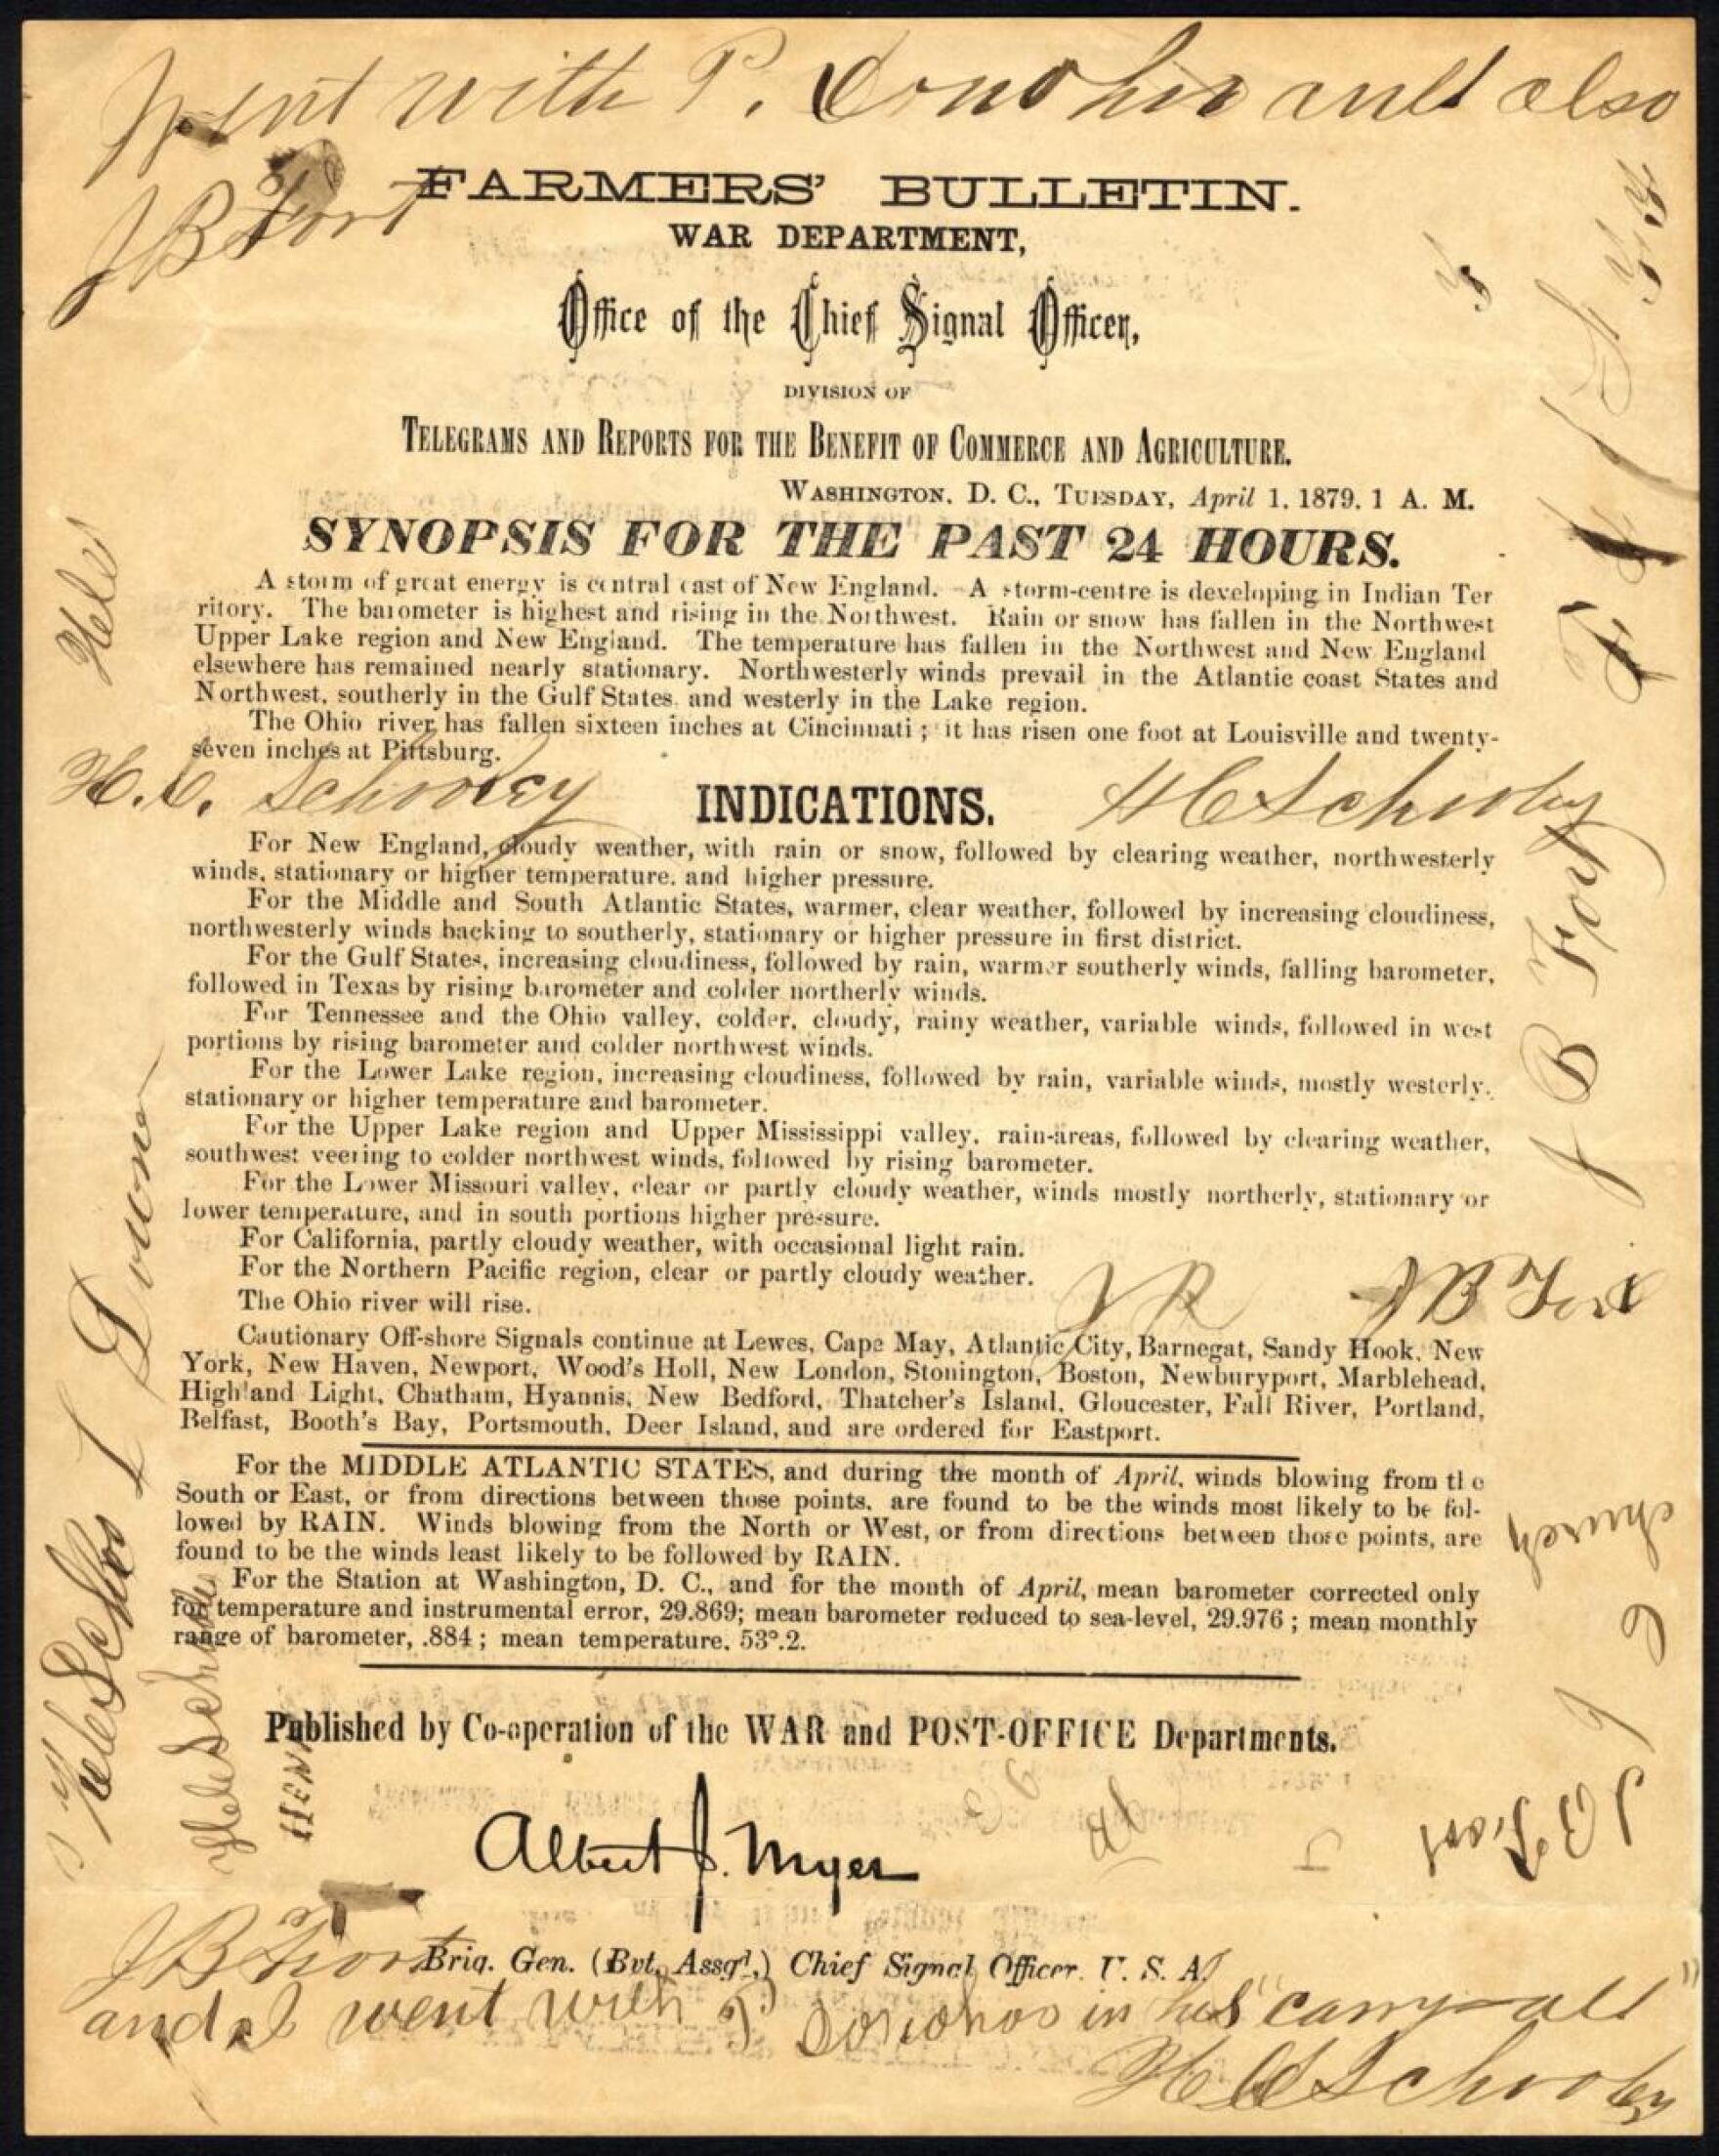 Went with P. and also
J B Fort
FARMERS' BULLETIN.
WAR DEPARTMENT,
Office of the Chief Signal Officer,
DIVISION OF
TELEGRAMS AND REPORTS FOR THE BENEFIT OF COMMERCE AND AGRICULTURE.
WASHINGTON, D. C., TUESDAY, April 1, 1879. 1 A. M.
SYNOPSIS FOR THE PAST 24 HOURS.
A storm of great energy is central east of New England. A storm-centre is developing in Indian Ter
ritory. The barometer is highest and rising in the Northwest. Rain or snow has fallen in the Northwest
Upper Lake region and New England. The temperature has fallen in the Northwest and New England
elsewhere has remained nearly stationary. Northwesterly winds prevail in the Atlantic coast States and
Northwest, southerly in the Gulf States, and westerly in the Lake region.
The Ohio river has fallen sixteen inches at Cincinnati; it has risen one foot at Louisville and twenty-
seven inches at Pittsburg.
H. C. Schooley
H C Schooley
INDICATIONS.
For New England, cloudy weather, with rain or snow, followed by clearing weather, northwesterly
winds, stationary or higher temperature, and higher pressure.
For the Middle and South Atlantic States, warmer, clear weather, followed by increasing cloudiness,
northwesterly winds backing to southerly, stationary or higher pressure in first district.
For the Gulf States, increasing cloudiness, followed by rain, warmer southerly winds, falling barometer,
followed in Texas by rising barometer and colder northerly winds.
For Tennessee and the Ohio valley, colder, cloudy, rainy weather, variable winds, followed in west
portions by rising barometer and colder northwest winds.
For the Lower Lake region, increasing cloudiness, followed by rain, variable winds, mostly westerly,
stationary or higher temperature and barometer.
For the Upper Lake region and Upper Mississippi valley, rain-areas, followed by clearing weather,
southwest veering to colder northwest winds, followed by rising barometer.
For the Lower Missouri valley, clear or partly cloudy weather, winds mostly northerly, stationary or
lower temperature, and in south portions higher pressure.
For California, partly cloudy weather, with occasional light rain.
For the Northern Pacific region, clear or partly cloudy weather.
The Ohio river will rise.
J B Fort
J B Fort
Cautionary Off-shore Signals continue at Lewes, Cape May, Atlantic City, Barnegat, Sandy Hook, New
York, New Haven, Newport, Wood's Holl, New London, Stonington, Boston, Newburyport, Marblehead,
Highland Light, Chatham, Hyannis, New Bedford, Thatcher's Island, Gloucester, Fall River, Portland,
Belfast, Booth's Bay, Portsmouth, Deer Island, and are ordered for Eastport.
For the MIDDLE ATLANTIC STATES, and during the month of April, winds blowing from the
South or East, or from directions between those points, are found to be the winds most likely to be fol-
lowed by RAIN. Winds blowing from the North or West, or from directions between those points, are
found to be the winds least likely to be followed by RAIN.
For the Station at Washington, D. C., and for the month of April, mean barometer corrected only
for temperature and instrumental error, 29.869; mean barometer reduced to sea-level, 29.976; mean monthly
range of barometer, .884; mean temperature, 53°.2.
church
Published by Co-operation of the WAR and POST-OFFICE Departments.
J B Foort
Albert J. Myer
Brig. Gen. (Bvt. Assg'd,) Chief Signal Officer, U. S. A.
J B Foort
and I went with P in his "carry-all"
H C Schooley